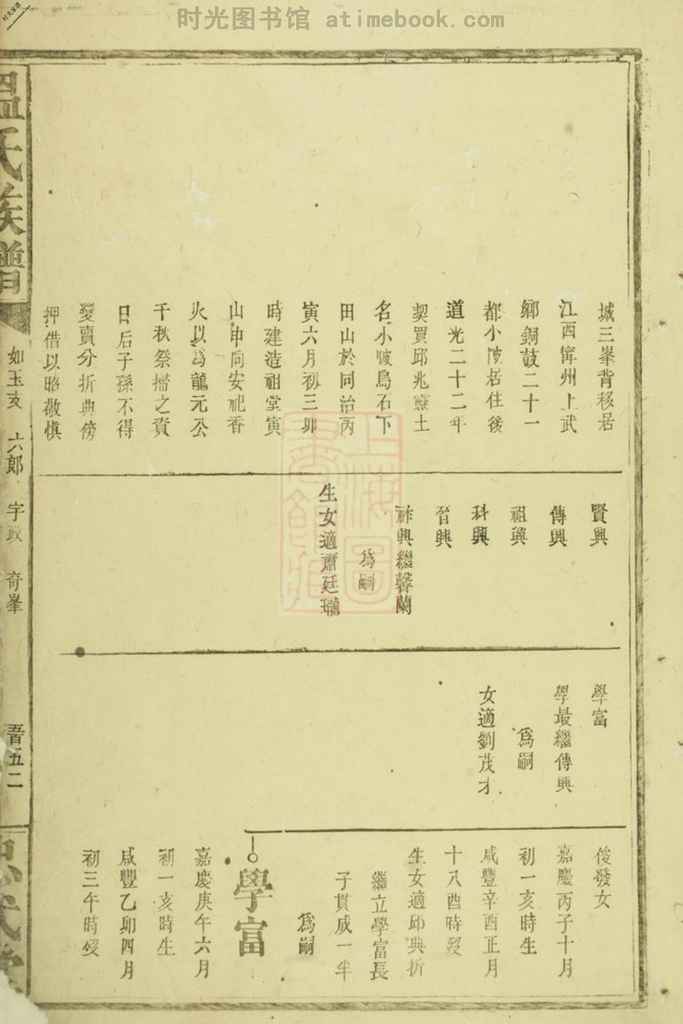 时光图书馆 atimebook.com
城三峯背移居
江西寧州上武
鄉銅鼓二十一
都小陂居住後
道光二十二年
契買邱兆應土
名小陂烏石下
田山於同治丙
寅六月初三卯
時建造祖堂寅
山申向安祀香
火以爲龍元公
千秋祭掃之資
日后子孫不得
變賣分折典傍
押借以昭敬慎
賢興
傳興
祖興
科興
晉興
祚興繼馨蘭
爲嗣
生女適蕭廷瓏
學富
學最繼傳興
爲嗣
女適劉茂才
俊發女
嘉慶丙子十月
初一亥時生
咸豐辛酉正月
十八酉時歿
生女適邱典折
繼立學富長
子貫成一半
爲嗣
學富
嘉慶庚午六月
初一亥時生
咸豐乙卯四月
初三午時歿
溫氏族譜
如玉支 六郎 字政 奇峯
五二